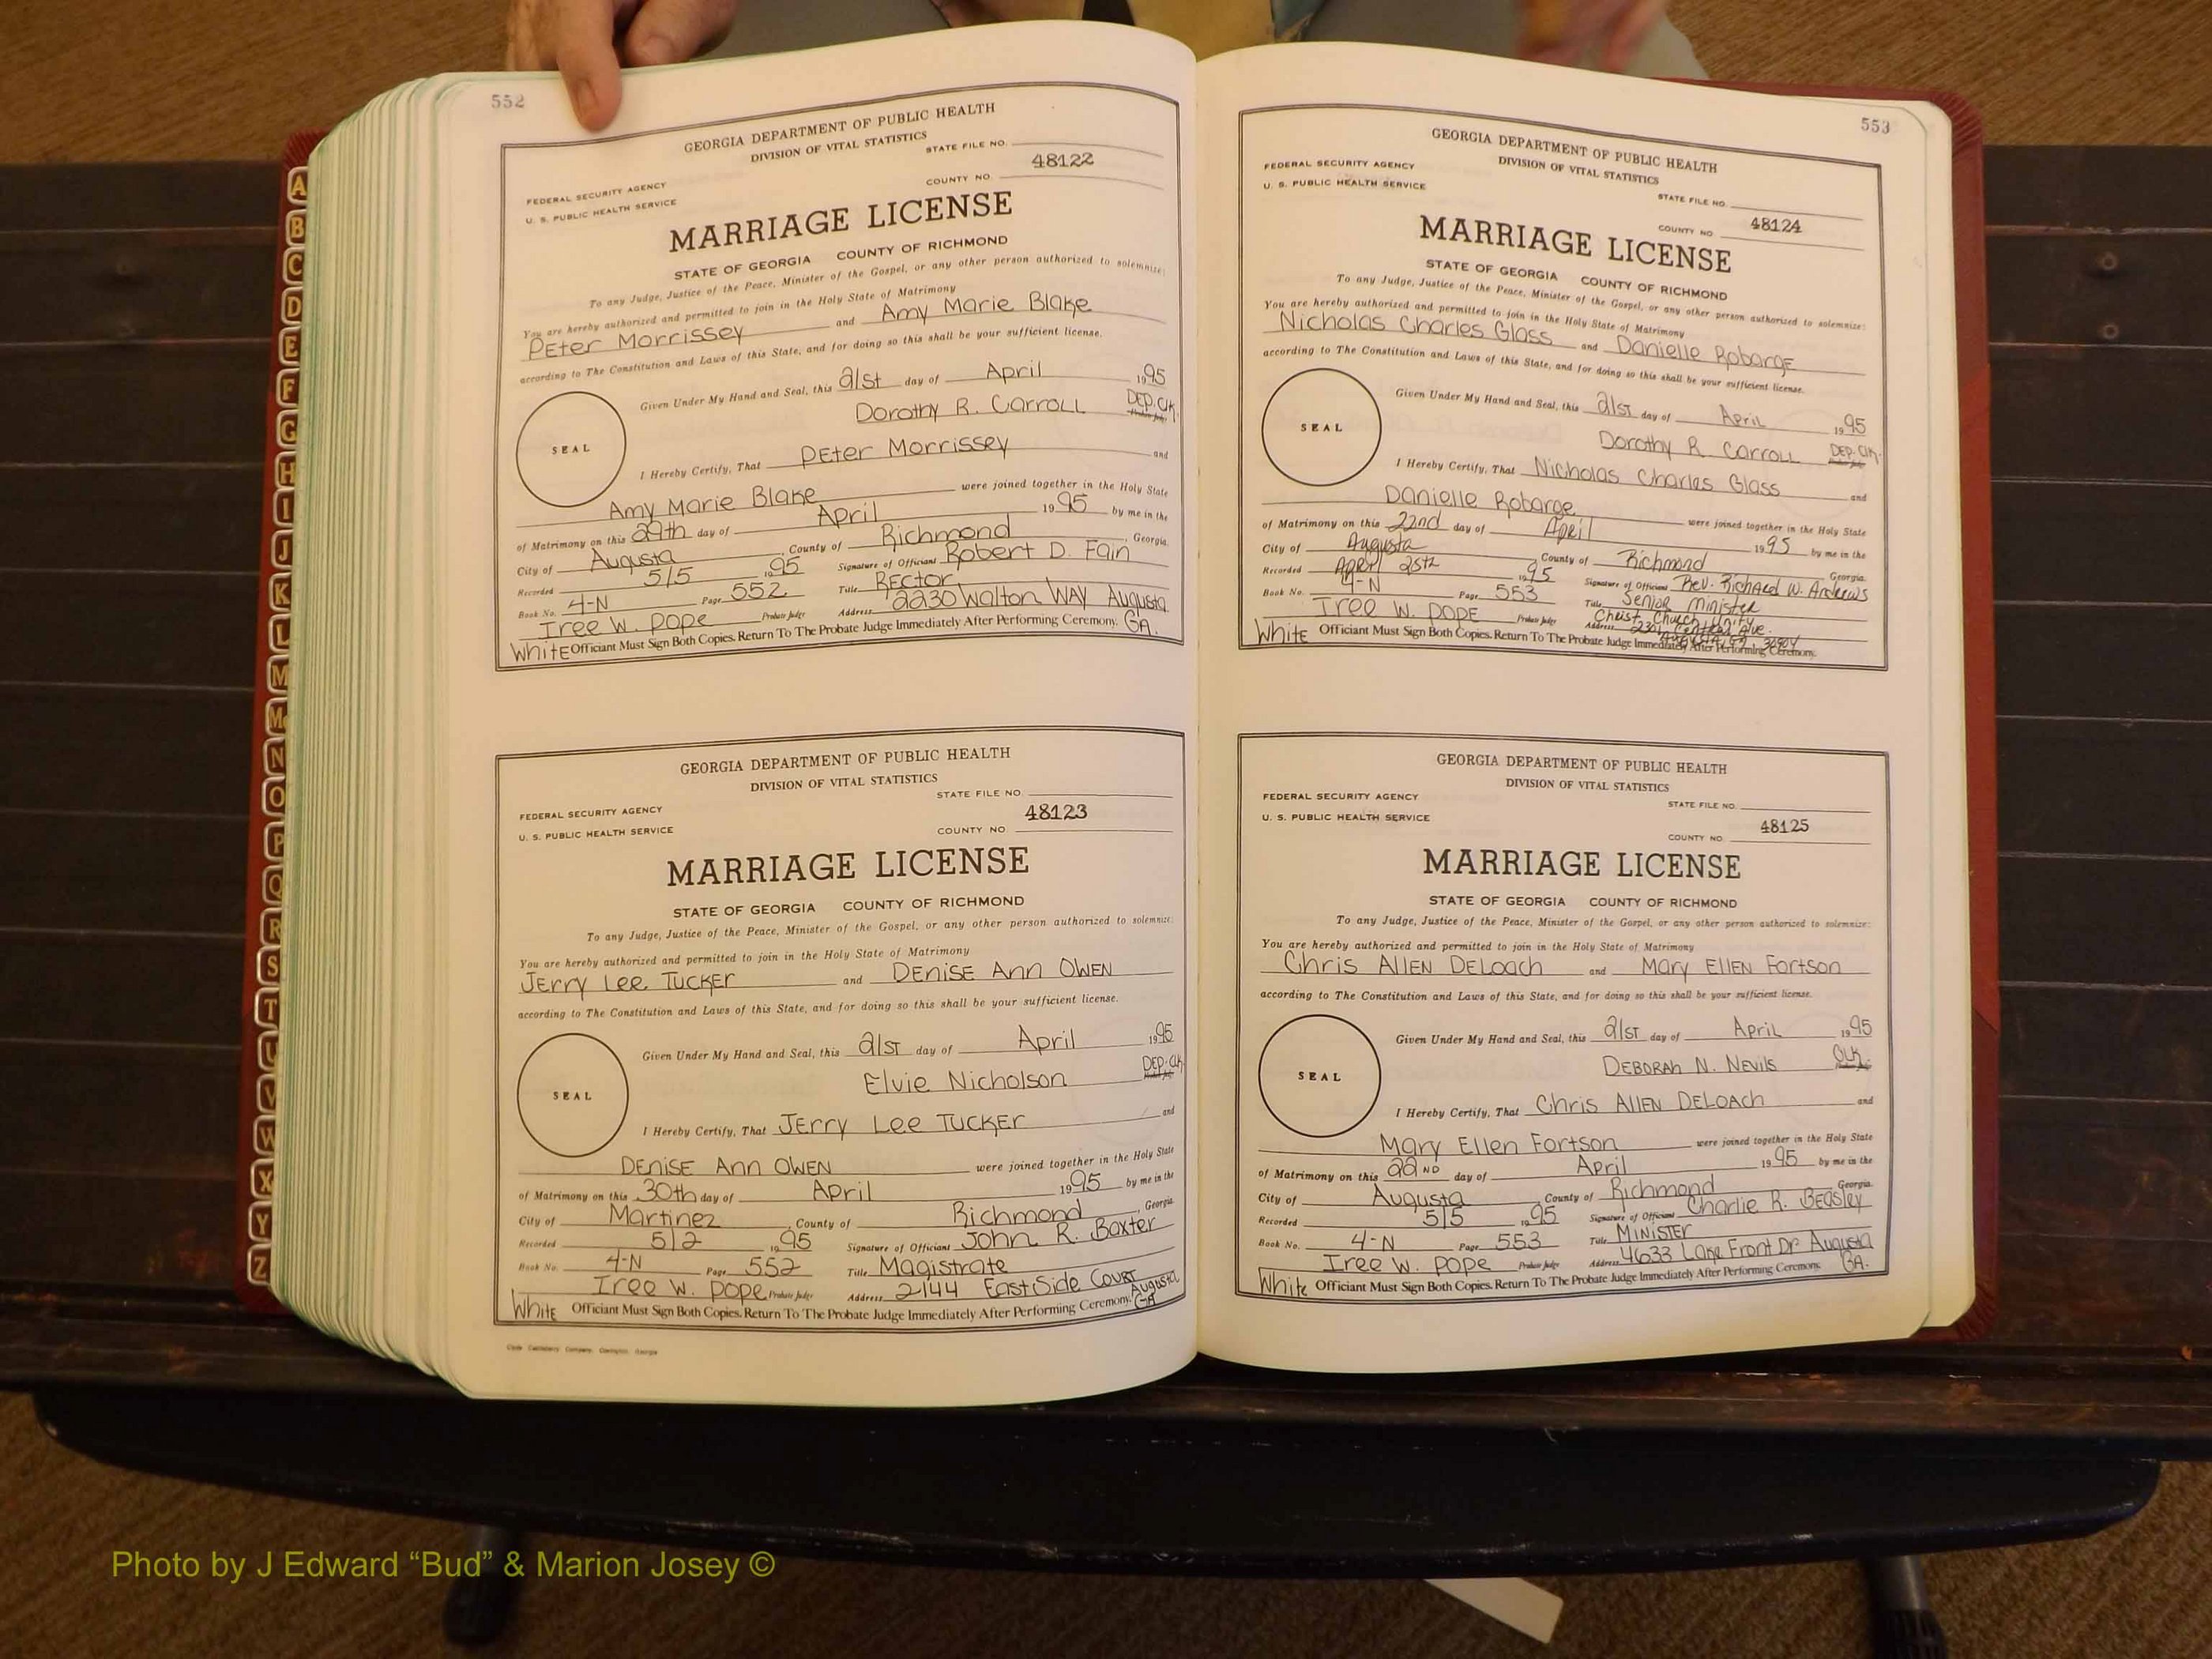 552
GEORGIA DEPARTMENT OF PUBLIC HEALTH
DIVISION OF VITAL STATISTICS
STATE FILE NO.
FEDERAL SECURITY AGENCY
48122
U. S. PUBLIC HEALTH SERVICE
COUNTY NO.
MARRIAGE LICENSE
STATE OF GEORGIA COUNTY OF RICHMOND
To any Judge, Justice of the Peace, Minister of the Gospel, or any other person authorized to solemnize:
You are hereby authorized and permitted to join in the Holy State of Matrimony
Peter Morrissey and Amy Marie Blake
according to The Constitution and Laws of this State, and for doing so this shall be your sufficient license.
Given Under My Hand and Seal, this 21st day of April 1995
Dorothy R. Carroll DEP. Clk.
SEAL
I Hereby Certify, That Peter Morrissey and
Amy Marie Blake were joined together in the Holy State
of Matrimony on this 29th day of April 1995 by me in the
City of Augusta, County of Richmond, Georgia.
Recorded 5/5 1995 Signature of Officiant Robert D. Fain
Book No. 4-N Page 552 Title Rector
Iree W. Pope Probate Judge Address 2230 Walton Way Augusta GA.
White Officiant Must Sign Both Copies. Return To The Probate Judge Immediately After Performing Ceremony.
GEORGIA DEPARTMENT OF PUBLIC HEALTH
DIVISION OF VITAL STATISTICS
STATE FILE NO.
FEDERAL SECURITY AGENCY
48123
U. S. PUBLIC HEALTH SERVICE
COUNTY NO
MARRIAGE LICENSE
STATE OF GEORGIA COUNTY OF RICHMOND
To any Judge, Justice of the Peace, Minister of the Gospel, or any other person authorized to solemnize:
You are hereby authorized and permitted to join in the Holy State of Matrimony
Jerry Lee Tucker and Denise Ann Owen
according to The Constitution and Laws of this State, and for doing so this shall be your sufficient license.
Given Under My Hand and Seal, this 21st day of April 1995
Elvie Nicholson DEP. Clk
SEAL
I Hereby Certify, That Jerry Lee Tucker and
Denise Ann Owen were joined together in the Holy State
of Matrimony on this 30th day of April 1995 by me in the
City of Martinez, County of Richmond, Georgia
Recorded 5/2 1995 Signature of Officiant John R. Baxter
Book No. 4-N Page 552 Title Magistrate
Iree W. Pope Probate Judge Address 2144 EastSide Court Augusta GA
White Officiant Must Sign Both Copies. Return To The Probate Judge Immediately After Performing Ceremony.
553
GEORGIA DEPARTMENT OF PUBLIC HEALTH
DIVISION OF VITAL STATISTICS
FEDERAL SECURITY AGENCY
U. S. PUBLIC HEALTH SERVICE
STATE FILE NO
48124
COUNTY NO
MARRIAGE LICENSE
STATE OF GEORGIA COUNTY OF RICHMOND
To any Judge, Justice of the Peace, Minister of the Gospel, or any other person authorized to solemnize:
You are hereby authorized and permitted to join in the Holy State of Matrimony
Nicholas Charles Glass and Danielle Robarge
according to The Constitution and Laws of this State, and for doing so this shall be your sufficient license.
Given Under My Hand and Seal, this 21st day of April 1995
Dorothy R. Carroll DEP. Clk.
SEAL
I Hereby Certify, That Nicholas Charles Glass and
Danielle Robarge were joined together in the Holy State
of Matrimony on this 22nd day of April 1995 by me in the
City of Augusta County of Richmond Georgia.
Recorded April 25th 1995 Signature of Officiant Rev. Richard W. Andrews
Book No. 4-N Page 553 Title Senior Minister
Christ Church Unity
Iree W. Pope Probate Judge Address 2301 Central Ave.
Augusta, GA 30904
White Officiant Must Sign Both Copies. Return To The Probate Judge Immediately After Performing Ceremony.
GEORGIA DEPARTMENT OF PUBLIC HEALTH
DIVISION OF VITAL STATISTICS
FEDERAL SECURITY AGENCY
STATE FILE NO.
U. S. PUBLIC HEALTH SERVICE
48125
COUNTY NO
MARRIAGE LICENSE
STATE OF GEORGIA COUNTY OF RICHMOND
To any Judge, Justice of the Peace, Minister of the Gospel, or any other person authorized to solemnize:
You are hereby authorized and permitted to join in the Holy State of Matrimony
Chris Allen DeLoach and Mary Ellen Fortson
according to The Constitution and Laws of this State, and for doing so this shall be your sufficient license.
Given Under My Hand and Seal, this 21st day of April 1995
Deborah N. Nevils Clk.
SEAL
I Hereby Certify, That Chris Allen DeLoach and
Mary Ellen Fortson were joined together in the Holy State
of Matrimony on this 22nd day of April 1995 by me in the
City of Augusta, County of Richmond Georgia.
Recorded 5/5 1995 Signature of Officiant Charlie R. Beasley
Book No. 4-N Page 553 Title Minister
Iree W. Pope Probate Judge Address 4633 Lake Front Dr Augusta GA.
White Officiant Must Sign Both Copies. Return To The Probate Judge Immediately After Performing Ceremony.
A
B
C
D
E
F
G
H
I
J
K
L
M
Mc
N
O
P
Q
R
S
T
U
V
W
X
Y
Z
Photo by J Edward “Bud” & Marion Josey ©